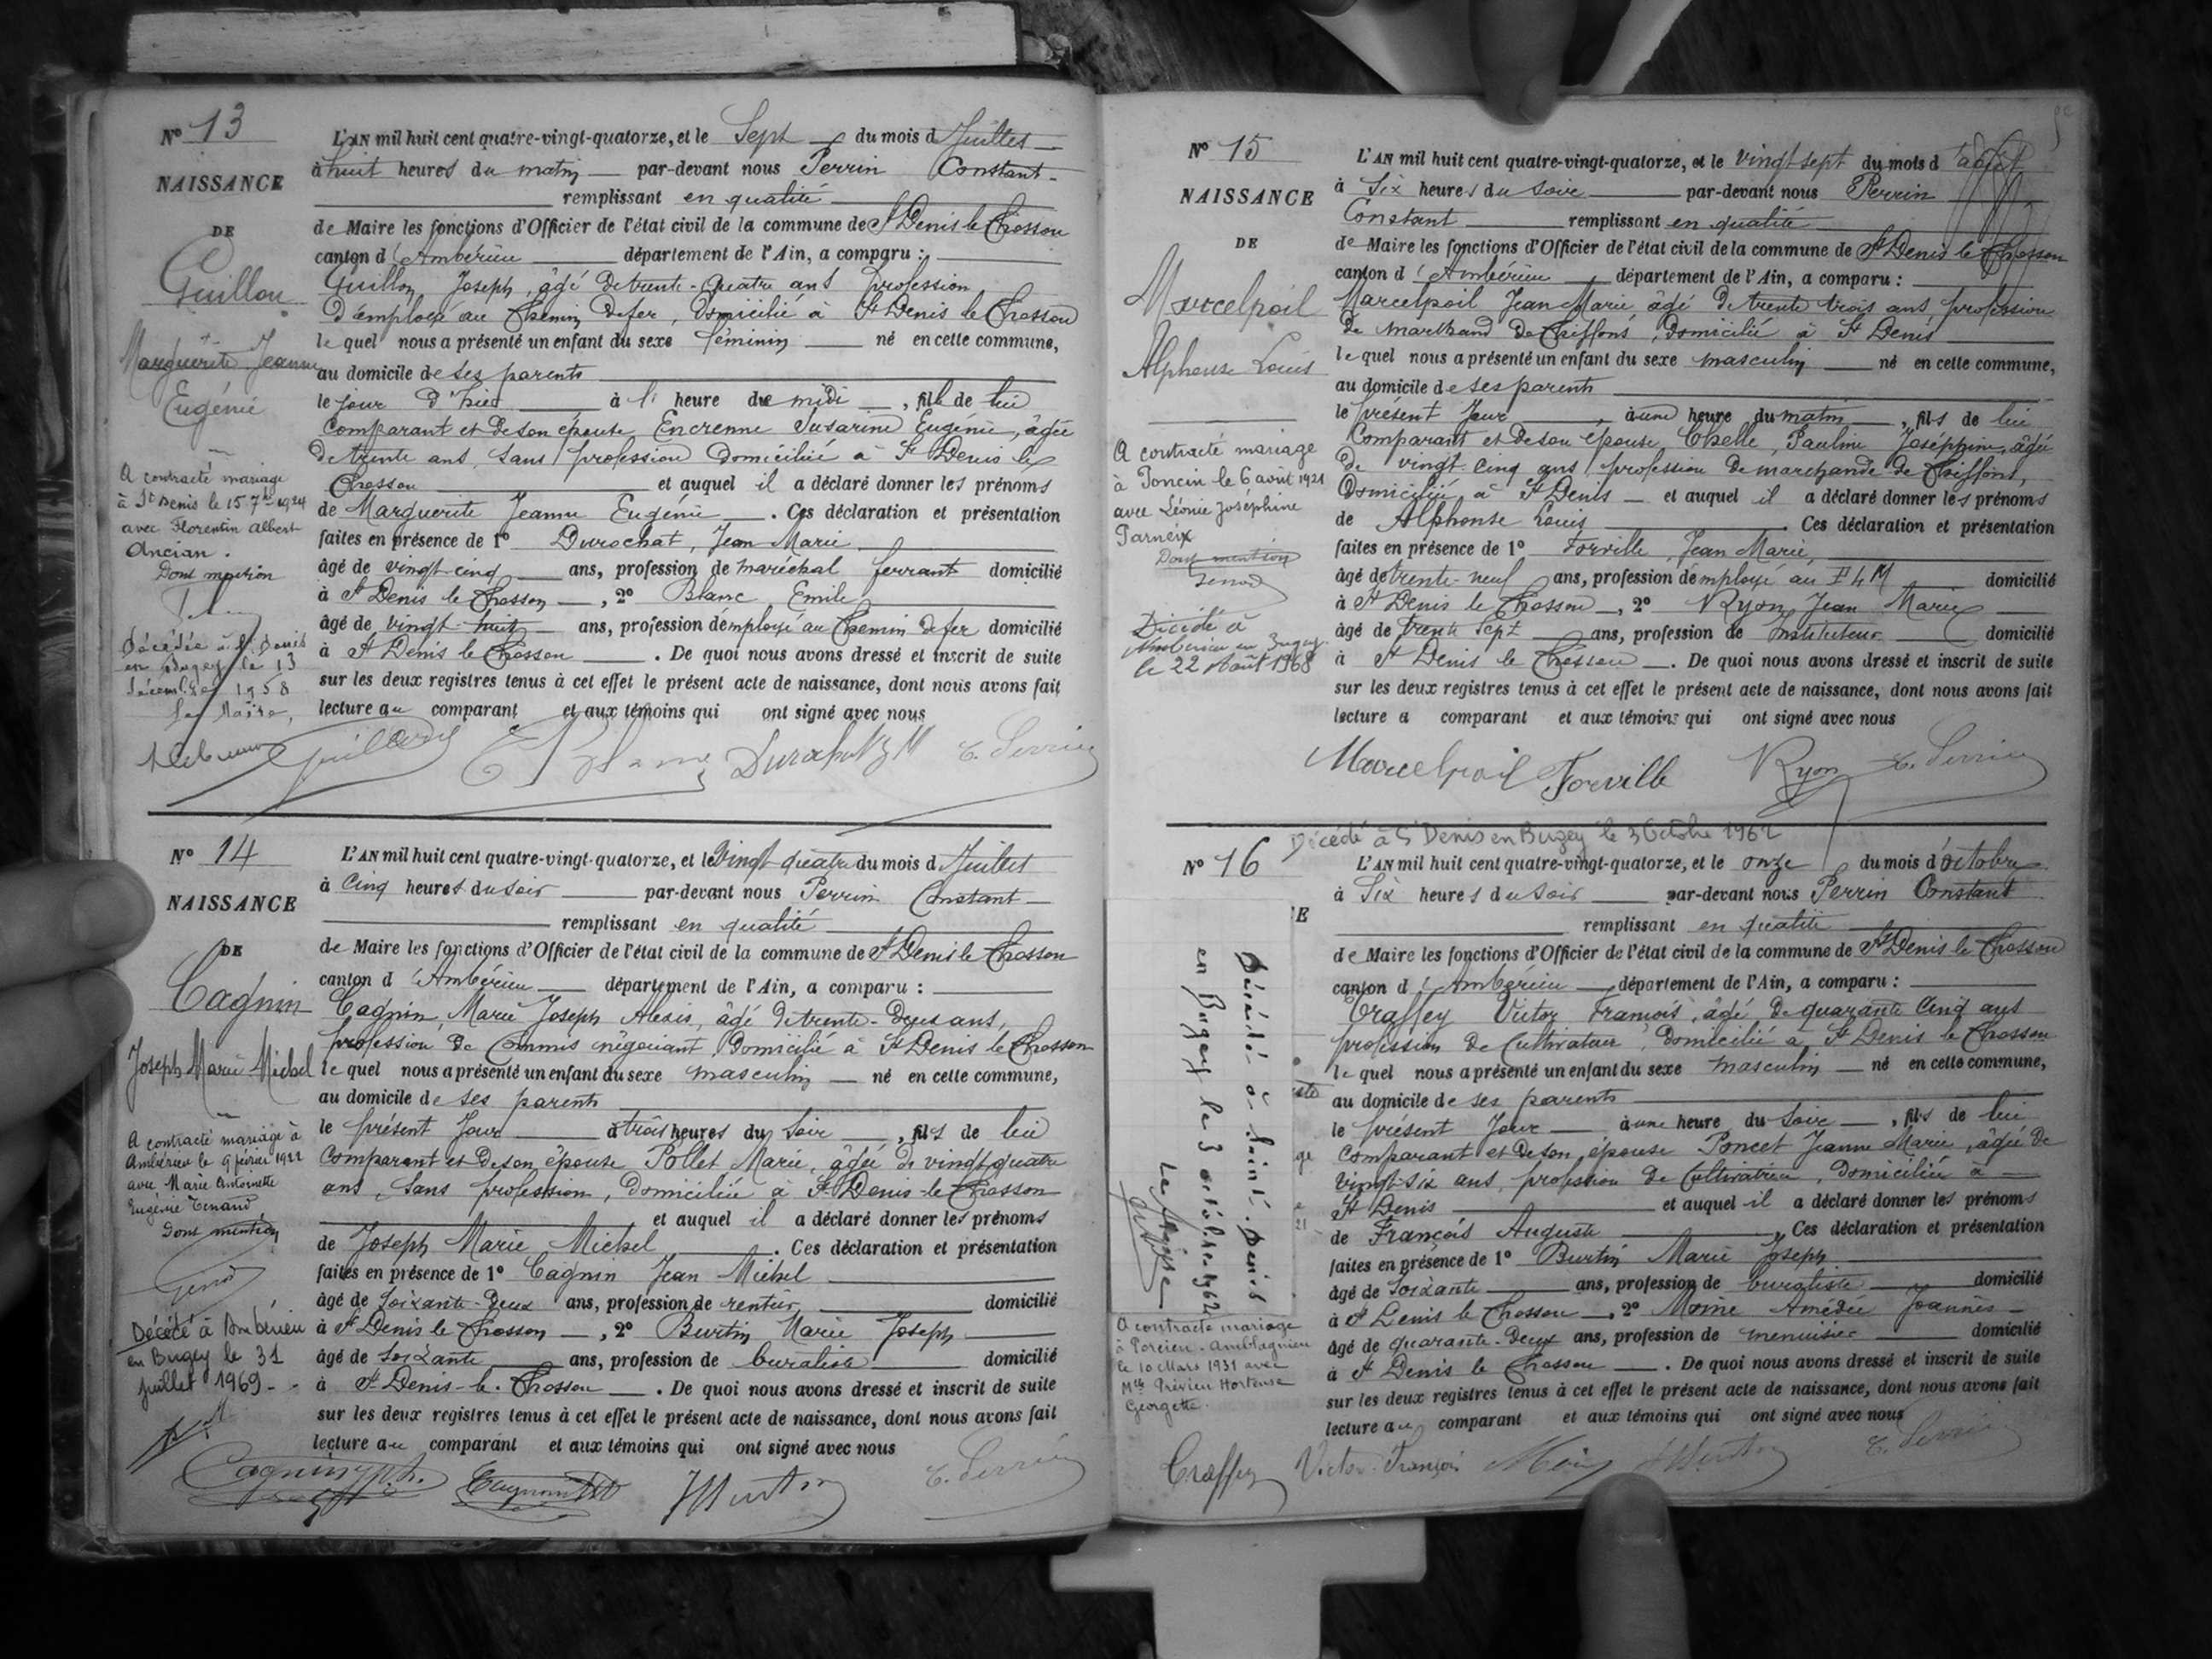 Nº 13
NAISSANCE
DE
Guillon
Marguerite Jeanne
Eugénie
A contracté mariage
à St Denis le 15 7bre 1924
avec Florentin Albert
Ancian.
Dont mention
Décédée à St Denis
en Bugey le 13
décembre 1958
Le Maire,
L'AN mil huit cent quatre-vingt-quatorze, et le Sept du mois d Juillet
à huit heures du matin par-devant nous Perrin Constant
remplissant en qualité
de Maire les fonctions d'Officier de l'état civil de la commune de St Denis le Chosson
canton d'Ambérieu département de l'Ain, a comparu :
Guillon Joseph, âgé de trente-quatre ans profession
d'employé au Chemin de fer, domicilié à St Denis le Chosson
lequel nous a présenté un enfant du sexe féminin né en cette commune,
au domicile de ses parents
le jour d'hier à heure de midi, fille de lui
comparant et de son épouse Encrenne Suzanne Eugénie, âgée
de trente ans, sans profession domiciliée à St Denis le
Chosson et auquel il a déclaré donner les prénoms
de Marguerite Jeanne Eugénie. Ces déclaration et présentation
faites en présence de 1º Durochat, Jean Marie
âgé de vingt-cinq ans, profession de maréchal ferrant domicilié
à St Denis le Chosson, 2º Blanc Emile
âgé de vingt-huit ans, profession d'employé au Chemin de fer domicilié
à St Denis le Chosson. De quoi nous avons dressé et inscrit de suite
sur les deux registres tenus à cet effet le présent acte de naissance, dont nous avons fait
lecture au comparant et aux témoins qui ont signé avec nous
C. Perrin
Nº 14
NAISSANCE
DE
Cagnin
Joseph Marie Michel
A contracté mariage à
Ambérieu le 9 février 1922
avec Marie Antoinette
Eugénie Tenand
Dont mention
Décédé à Ambérieu
en Bugey le 31
juillet 1969
L'AN mil huit cent quatre-vingt-quatorze, et le Vingt-quatre du mois d Juillet
à Cinq heures du soir par-devant nous Perrin Constant
remplissant en qualité
de Maire les fonctions d'Officier de l'état civil de la commune de St Denis le Chosson
canton d'Ambérieu département de l'Ain, a comparu :
Cagnin Marie Joseph Alexis, âgé de trente-deux ans,
profession de Commis négociant, domicilié à St Denis le Chosson
lequel nous a présenté un enfant du sexe masculin né en cette commune,
au domicile de ses parents
le présent Jour à trois heures du Soir, fils de lui
comparant et de son épouse Pollet Marie, âgée de vingt quatre
ans, sans profession, domiciliée à St Denis-le Chosson
et auquel il a déclaré donner les prénoms
de Joseph Marie Michel. Ces déclaration et présentation
faites en présence de 1º Cagnin Jean Michel
âgé de Soixante-deux ans, profession de rentier domicilié
à St Denis le Chosson, 2º Burtin Marie Joseph
âgé de Soixante ans, profession de buraliste domicilié
à St Denis-le-Chosson. De quoi nous avons dressé et inscrit de suite
sur les deux registres tenus à cet effet le présent acte de naissance, dont nous avons fait
lecture au comparant et aux témoins qui ont signé avec nous
C. Perrin
Nº 15
NAISSANCE
DE
Marcelpoil
Alphonse Louis
A contracté mariage
à Poncin le 6 août 1921
avec Léonie Joséphine
Parneix
Dont mention
Décédé à
Ambérieu en Bugey
le 22 Août 1968
L'AN mil huit cent quatre-vingt-quatorze, et le vingt sept du mois d'août
à Six heures du Soir par-devant nous Perrin
Constant remplissant en qualité
de Maire les fonctions d'Officier de l'état civil de la commune de St Denis le Chosson
canton d'Ambérieu département de l'Ain, a comparu :
Marcelpoil Jean Marie âgé de trente trois ans profession
de marchand de Chiffons, domicilié à St Denis
lequel nous a présenté un enfant du sexe masculin né en cette commune,
au domicile de ses parents
le présent Jour, à une heure du matin, fils de lui
comparant et de son épouse, Chelle, Pauline Joséphine, âgée
de vingt-cinq ans, profession de marchande de Chiffons,
Domiciliée à St Denis et auquel il a déclaré donner les prénoms
de Alphonse Louis. Ces déclaration et présentation
faites en présence de 1º Forville, Jean Marie
âgé de trente-neuf ans, profession d'employé au P L M domicilié
à St Denis le Chosson, 2º Ryon Jean Marie
âgé de trente Sept ans, profession de Instituteur domicilié
à St Denis le Chosson. De quoi nous avons dressé et inscrit de suite
sur les deux registres tenus à cet effet le présent acte de naissance, dont nous avons fait
lecture a comparant et aux témoins qui ont signé avec nous
Marcelpoil Forville Ryon C. Perrin
Décédé à St Denis en Bugey le 3 Octobre 1962
Nº 16
E
Décédé à Saint-Denis
en Bugey le 3 octobre 1962
Le Maire
A contracté mariage
à Porcieu-Amblagnieu
le 10 Mars 1931 avec
Mlle Prévieu Hortense
Georgette.
L'AN mil huit cent quatre-vingt-quatorze, et le onze du mois d'octobre
à Six heures du Soir par-devant nous Perrin Constant
remplissant en qualité
de Maire les fonctions d'Officier de l'état civil de la commune de St Denis le Chosson
canton d'Ambérieu département de l'Ain, a comparu :
Traffey Victor François, âgé de quarante Cinq ans
profession de Cultivateur, domicilié à St Denis le Chosson
lequel nous a présenté un enfant du sexe masculin né en cette commune,
au domicile de ses parents
le présent Jour à une heure du Soir, fils de lui
comparant et de son épouse Poncet Jeanne Marie, âgée de
vingt-six ans, profession de Cultivatrice, domiciliée à
St Denis et auquel il a déclaré donner les prénoms
de François Auguste. Ces déclaration et présentation
faites en présence de 1º Burtin Marie Joseph
âgé de Soixante ans, profession de buraliste domicilié
à St Denis le Chosson, 2º Moine Amédée Joannès
âgé de quarante-deux ans, profession de menuisier domicilié
à St Denis le Chosson. De quoi nous avons dressé et inscrit de suite
sur les deux registres tenus à cet effet le présent acte de naissance, dont nous avons fait
lecture au comparant et aux témoins qui ont signé avec nous
Traffey Victor François C. Perrin